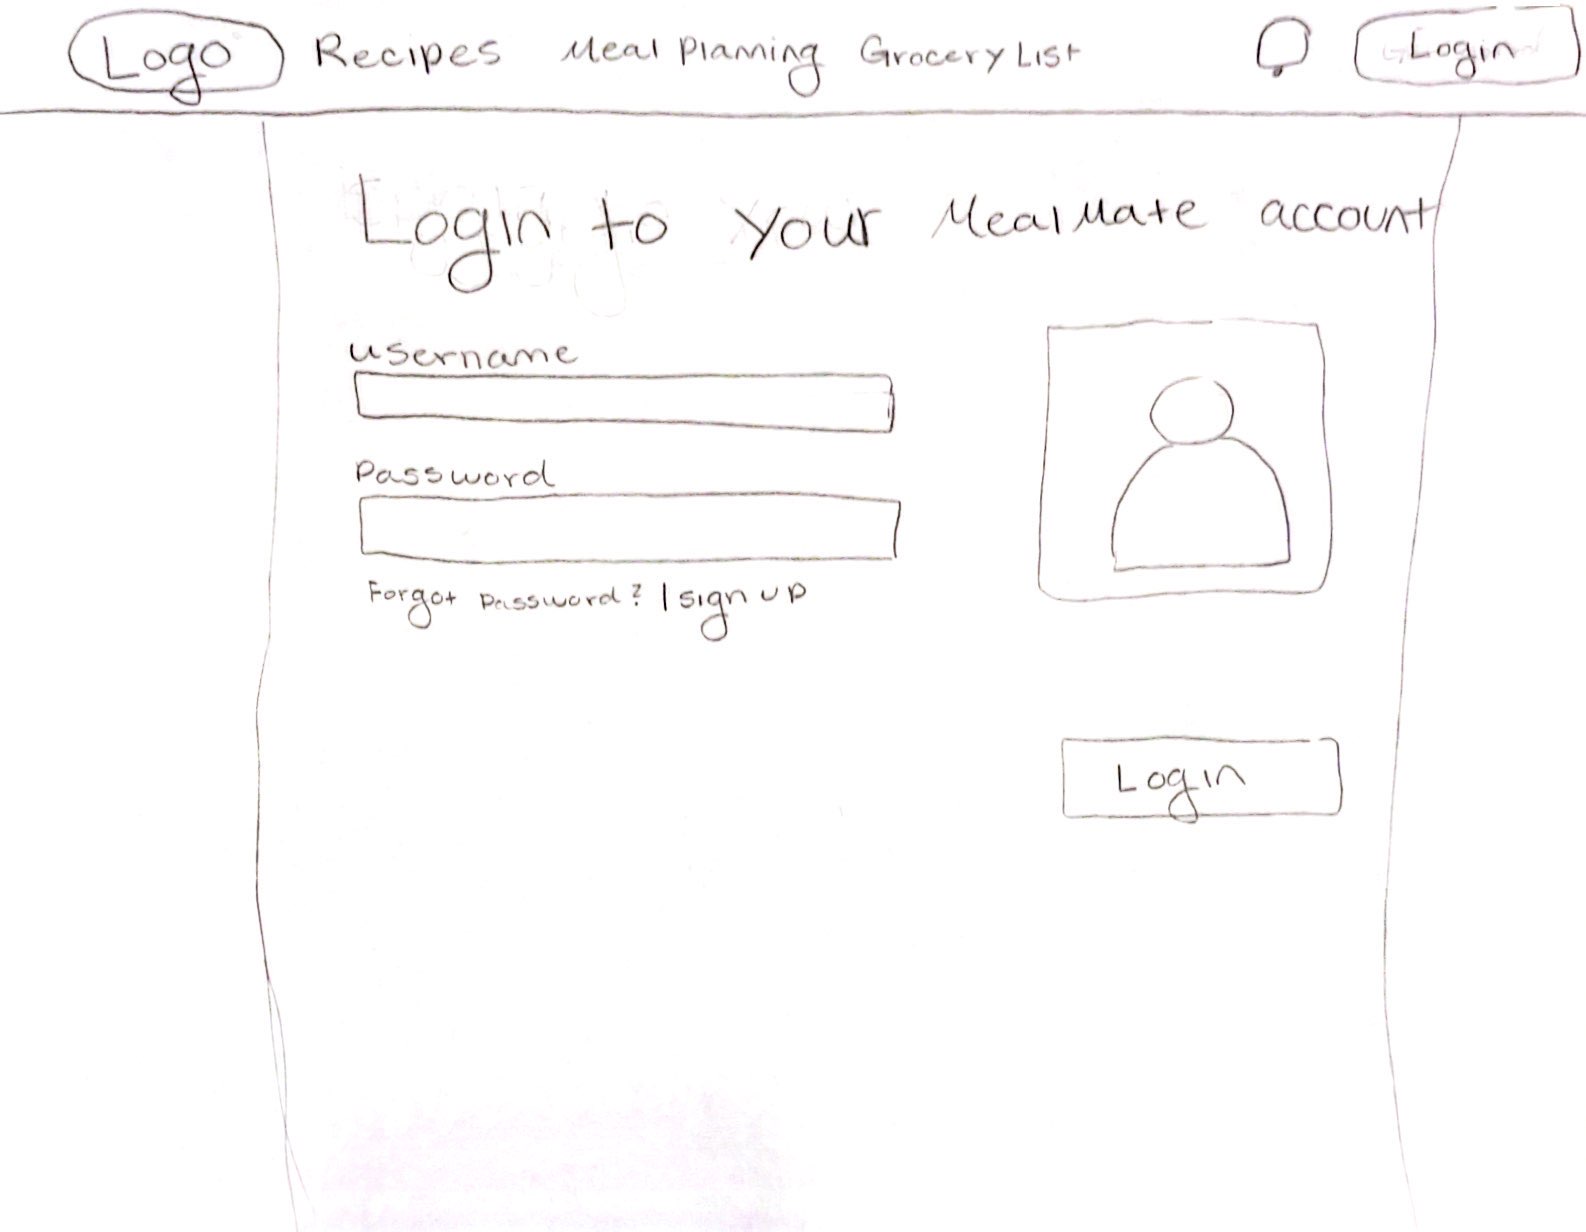 Logo Recipes Meal Planning Grocery List Login
Login to your MealMate account
username
Password
Forgot password? | sign up
Login